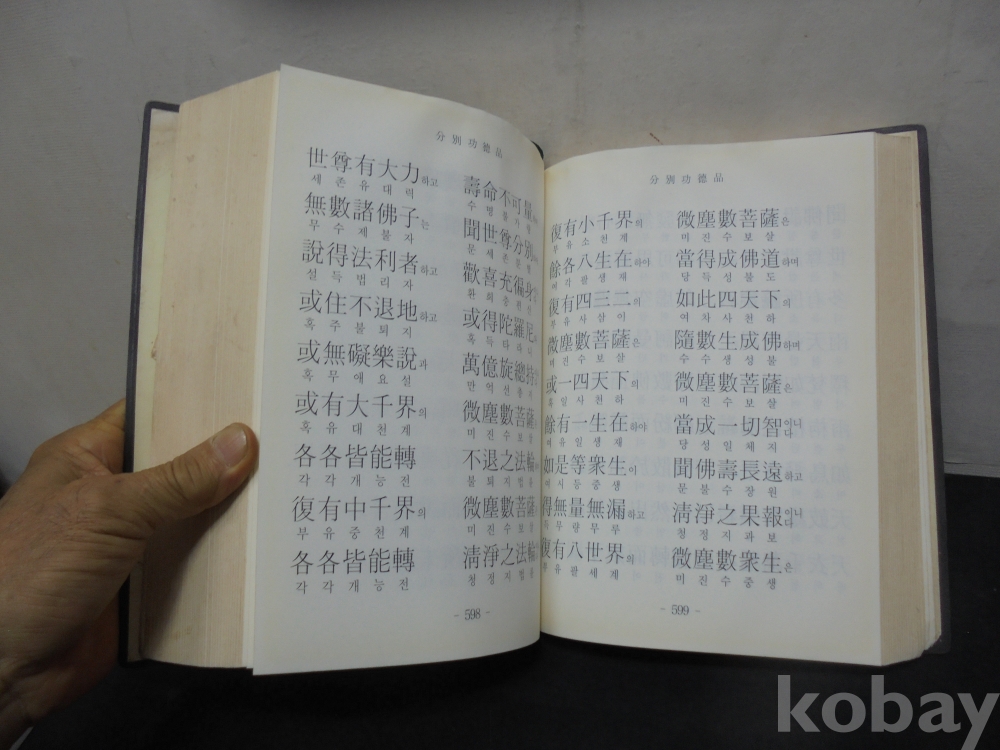 分別功德品
世尊有大力하고 壽命不可量
세존유대력 수명불가량
無數諸佛子는 聞世尊分別
무수제불자 문세존분별
說得法利者하고 歡喜充徧身
설득법리자 환희충변신
或住不退地하고 或得陀羅尼
혹주불퇴지 혹득타라니
或無礙樂說과 萬億旋總持
혹무애요설 만억선총지
或有大千界의 微塵數菩薩
혹유대천계 미진수보살
各各皆能轉 不退之法輪
각각개능전 불퇴지법륜
復有中千界의 微塵數菩薩
부유중천계 미진수보살
各各皆能轉 淸淨之法輪
각각개능전 청정지법륜
- 598 -
分別功德品
復有小千界의 微塵數菩薩은
부유소천계 미진수보살
餘各八生在하야 當得成佛道하며
여각팔생재 당득성불도
復有四三二의 如此四天下의
부유사삼이 여차사천하
微塵數菩薩은 隨數生成佛하며
미진수보살 수수생성불
或一四天下의 微塵數菩薩은
혹일사천하 미진수보살
餘有一生在하야 當成一切智이니다
여유일생재 당성일체지
如是等衆生이 聞佛壽長遠하고
여시등중생 문불수장원
得無量無漏하고 淸淨之果報이니다
득무량무루 청정지과보
復有八世界의 微塵數衆生은
부유팔세계 미진수중생
- 599 -
kobay